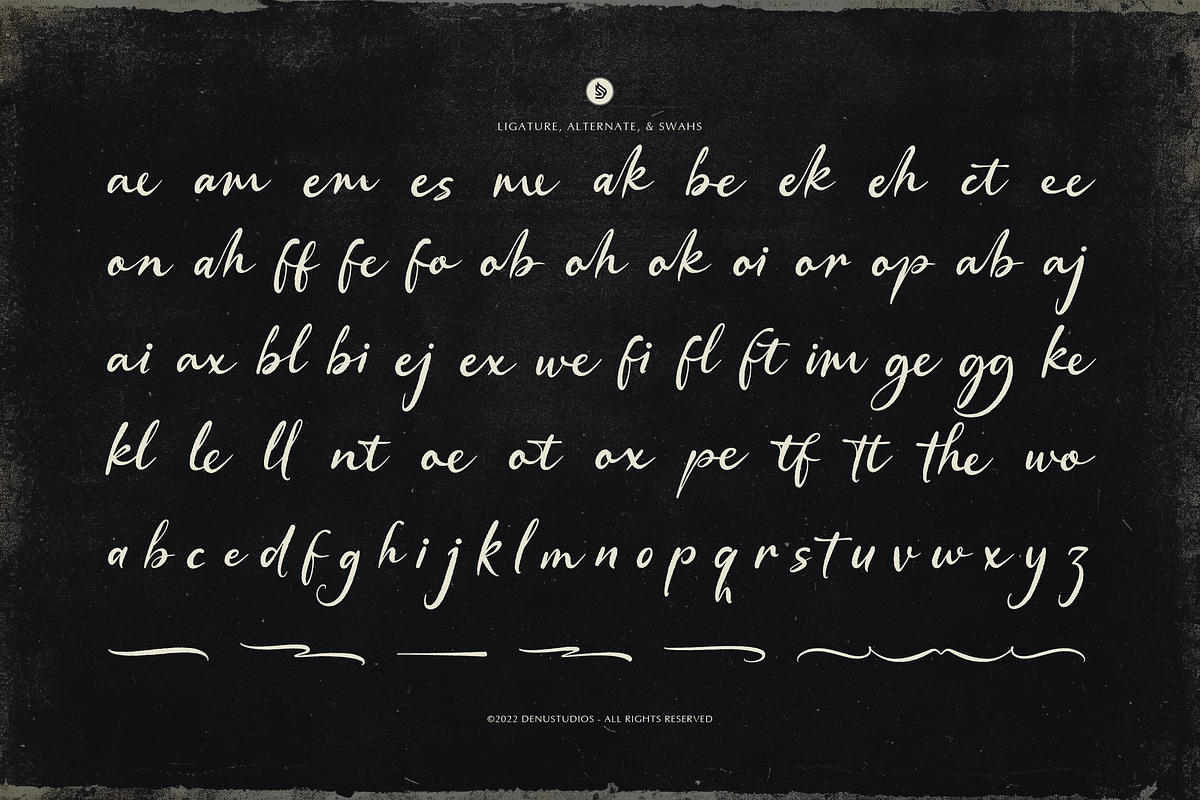 LIGATURE, ALTERNATE, & SWAHS
ae am em es me ak be ek eh ct ee
on ah ff fe fo ob oh ok oi or op ab aj
ai ax bl bi ej ex we fi fl ft im ge gg ke
kl le ll nt oe ot ox pe tf tt the wo
a b c e d f g h i j k l m n o p q r s t u v w x y z
©2022 DENUSTUDIOS - ALL RIGHTS RESERVED